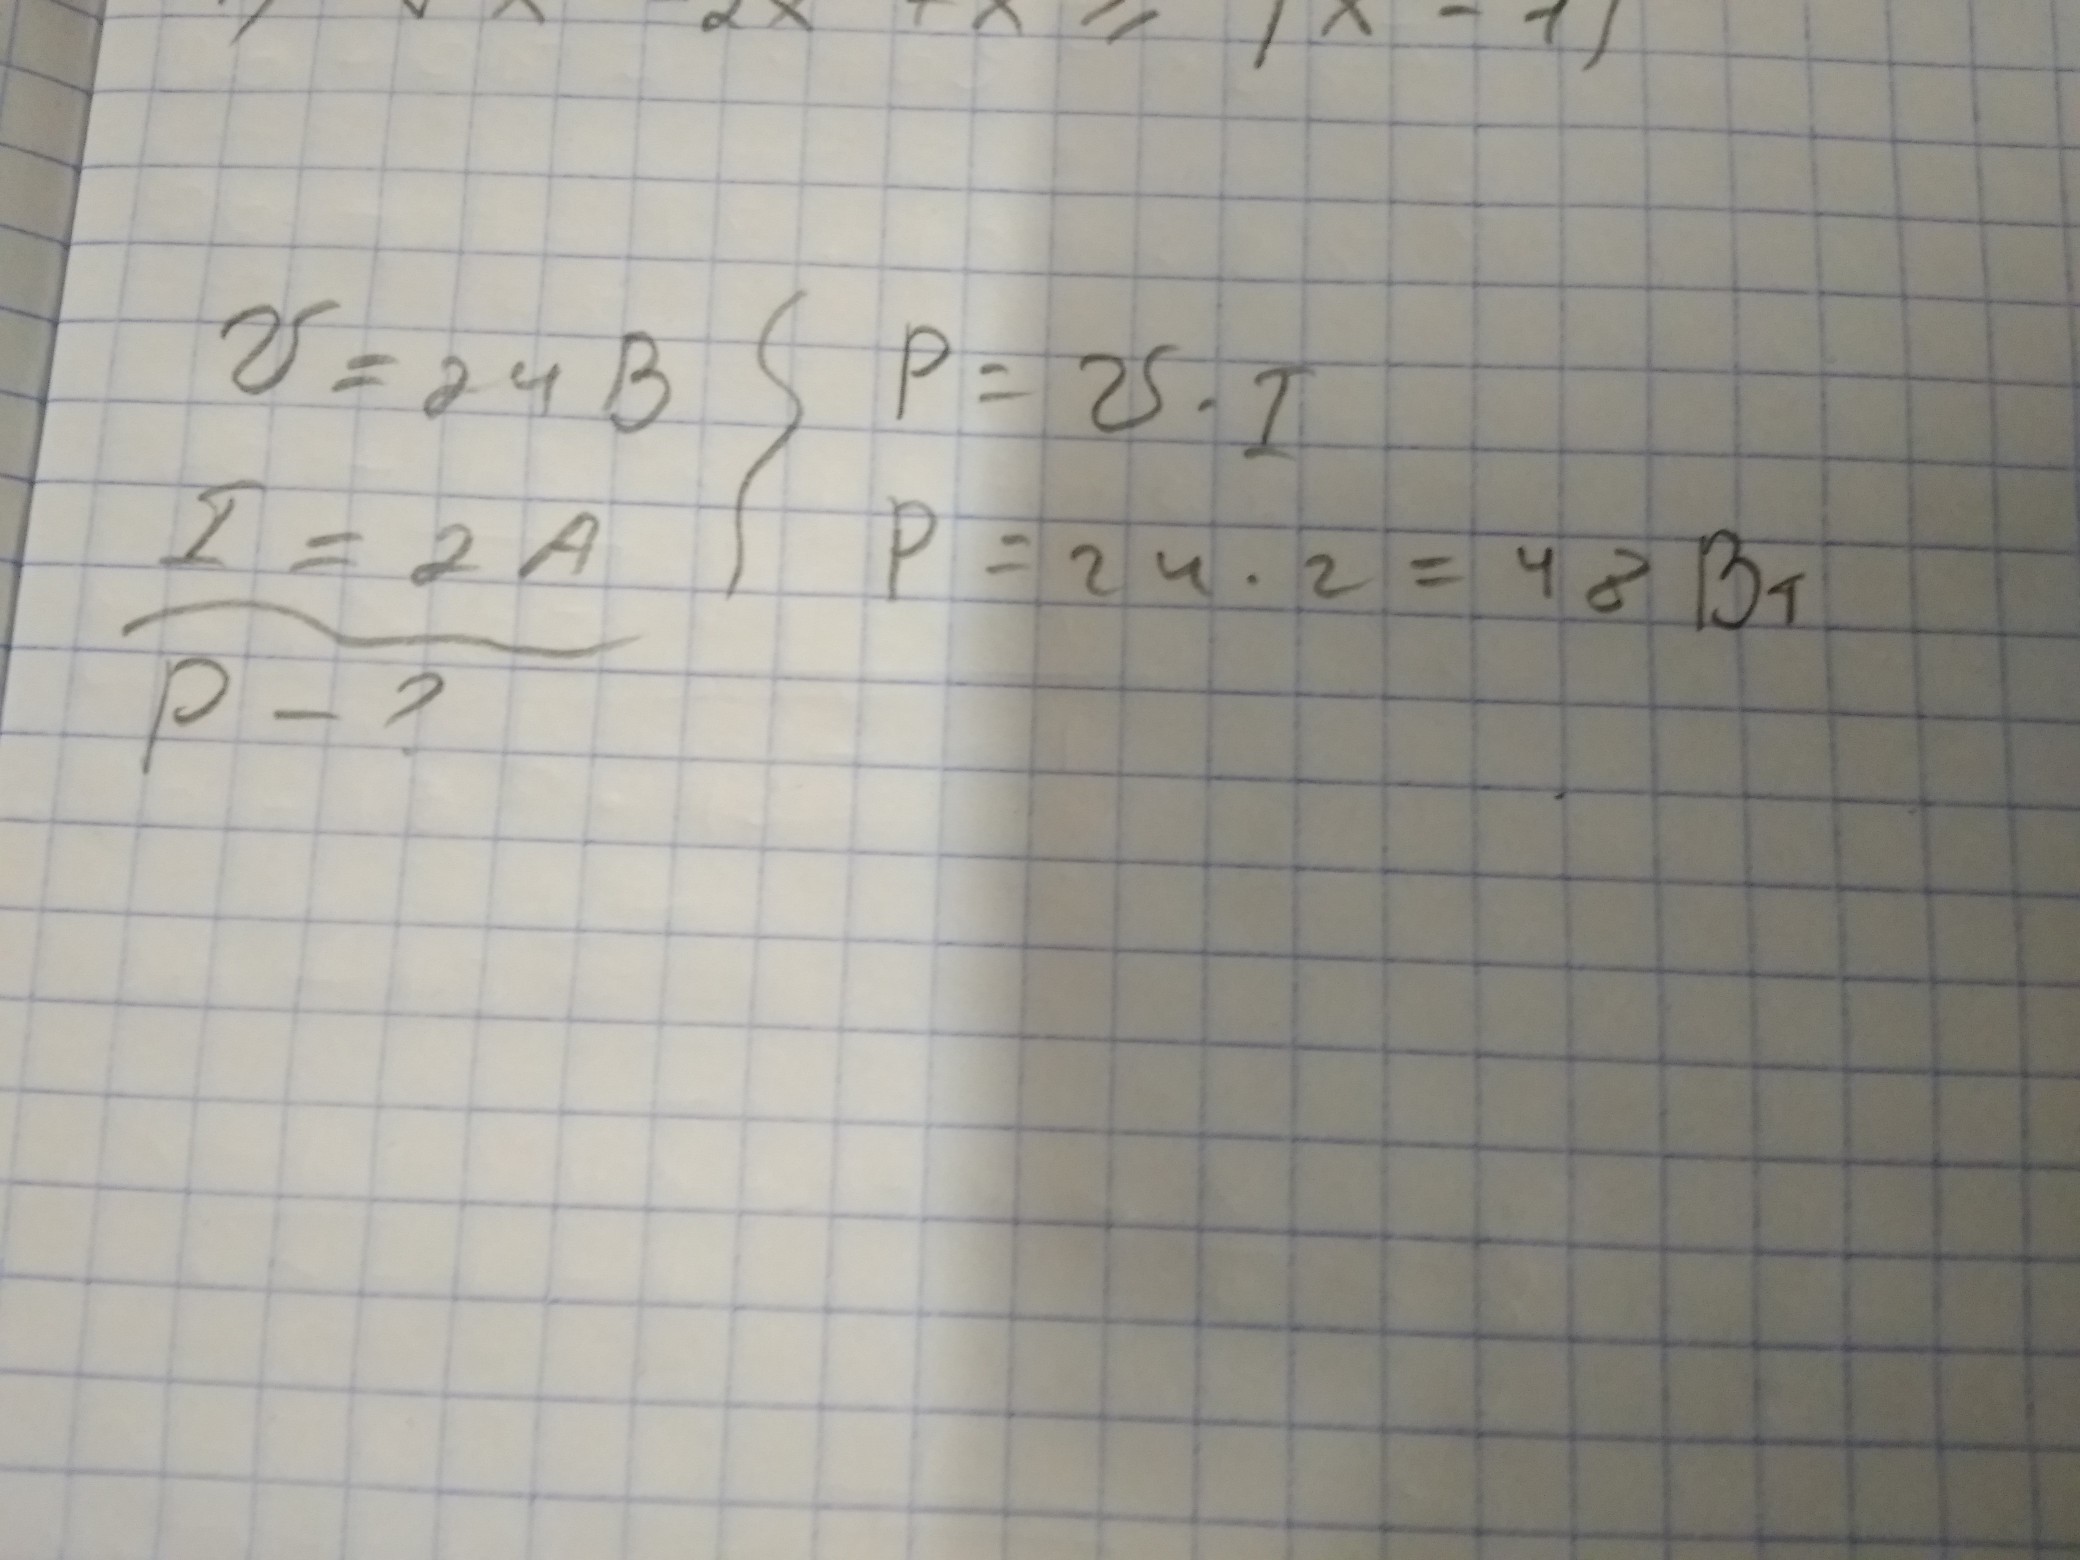 -2x + x = |x - 1|
U = 24 В
I = 2 А
P - ?
P = U · I
P = 24 · 2 = 48 Вт